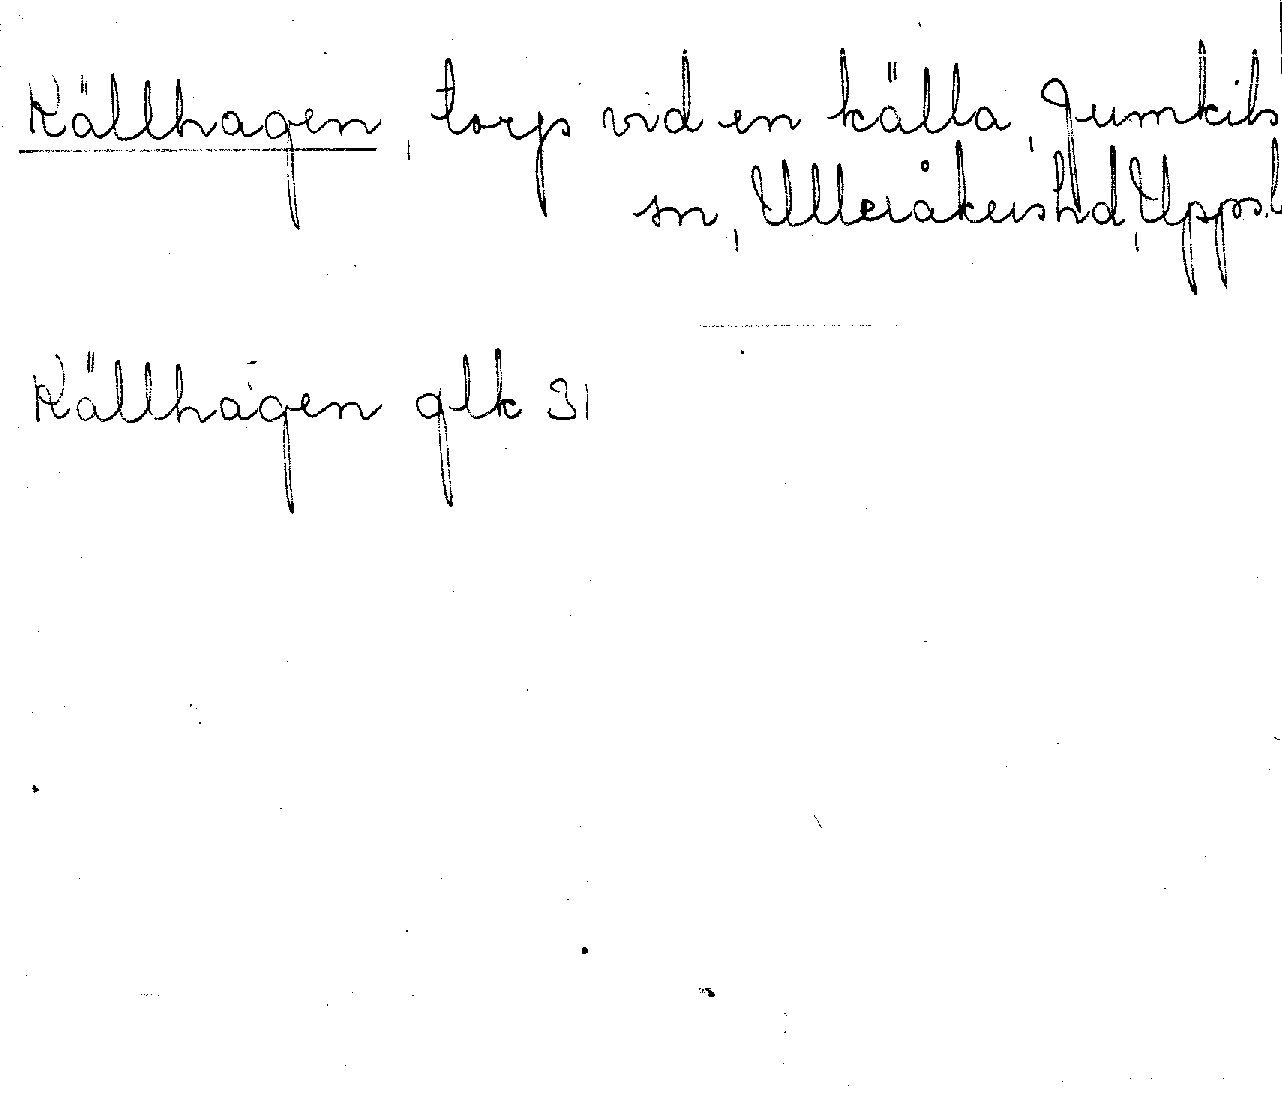 Källhagen, torp vid en källa, Jumkils
sn, Ulleråkers hd, Upps.l
Källhagen glk 31